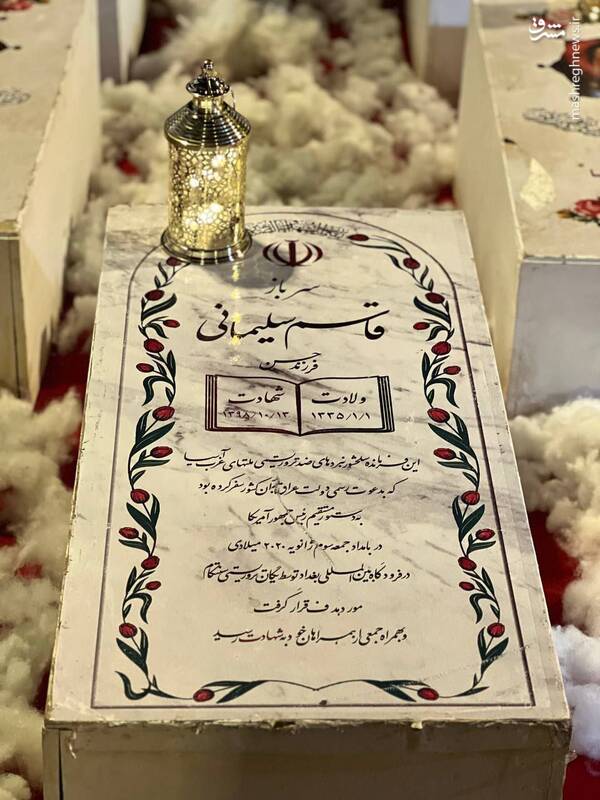 مشرق
mashreghnews.ir
سرباز
قاسم سلیمانی
فرزند حسن
ولادت شهادت
۱۳۳۵/۱/۱ ۱۳۹۸/۱۰/۱۳
این فرمانده سلحشور نبردهای ضد تروریستی ملتهای غرب آسیا
که بدعوت رسمی دولت عراق به آن کشور سفر کرده بود
به دستور مستقیم رئیس جمهور آمریکا
در بامداد جمعه سوم ژانویه ۲۰۲۰ میلادی
در فرودگاه بین المللی بغداد توسط یگان تروریستی سنتکام
مورد هدف قرار گرفت
و بهمراه جمعی از همراهان خود به شهادت رسید